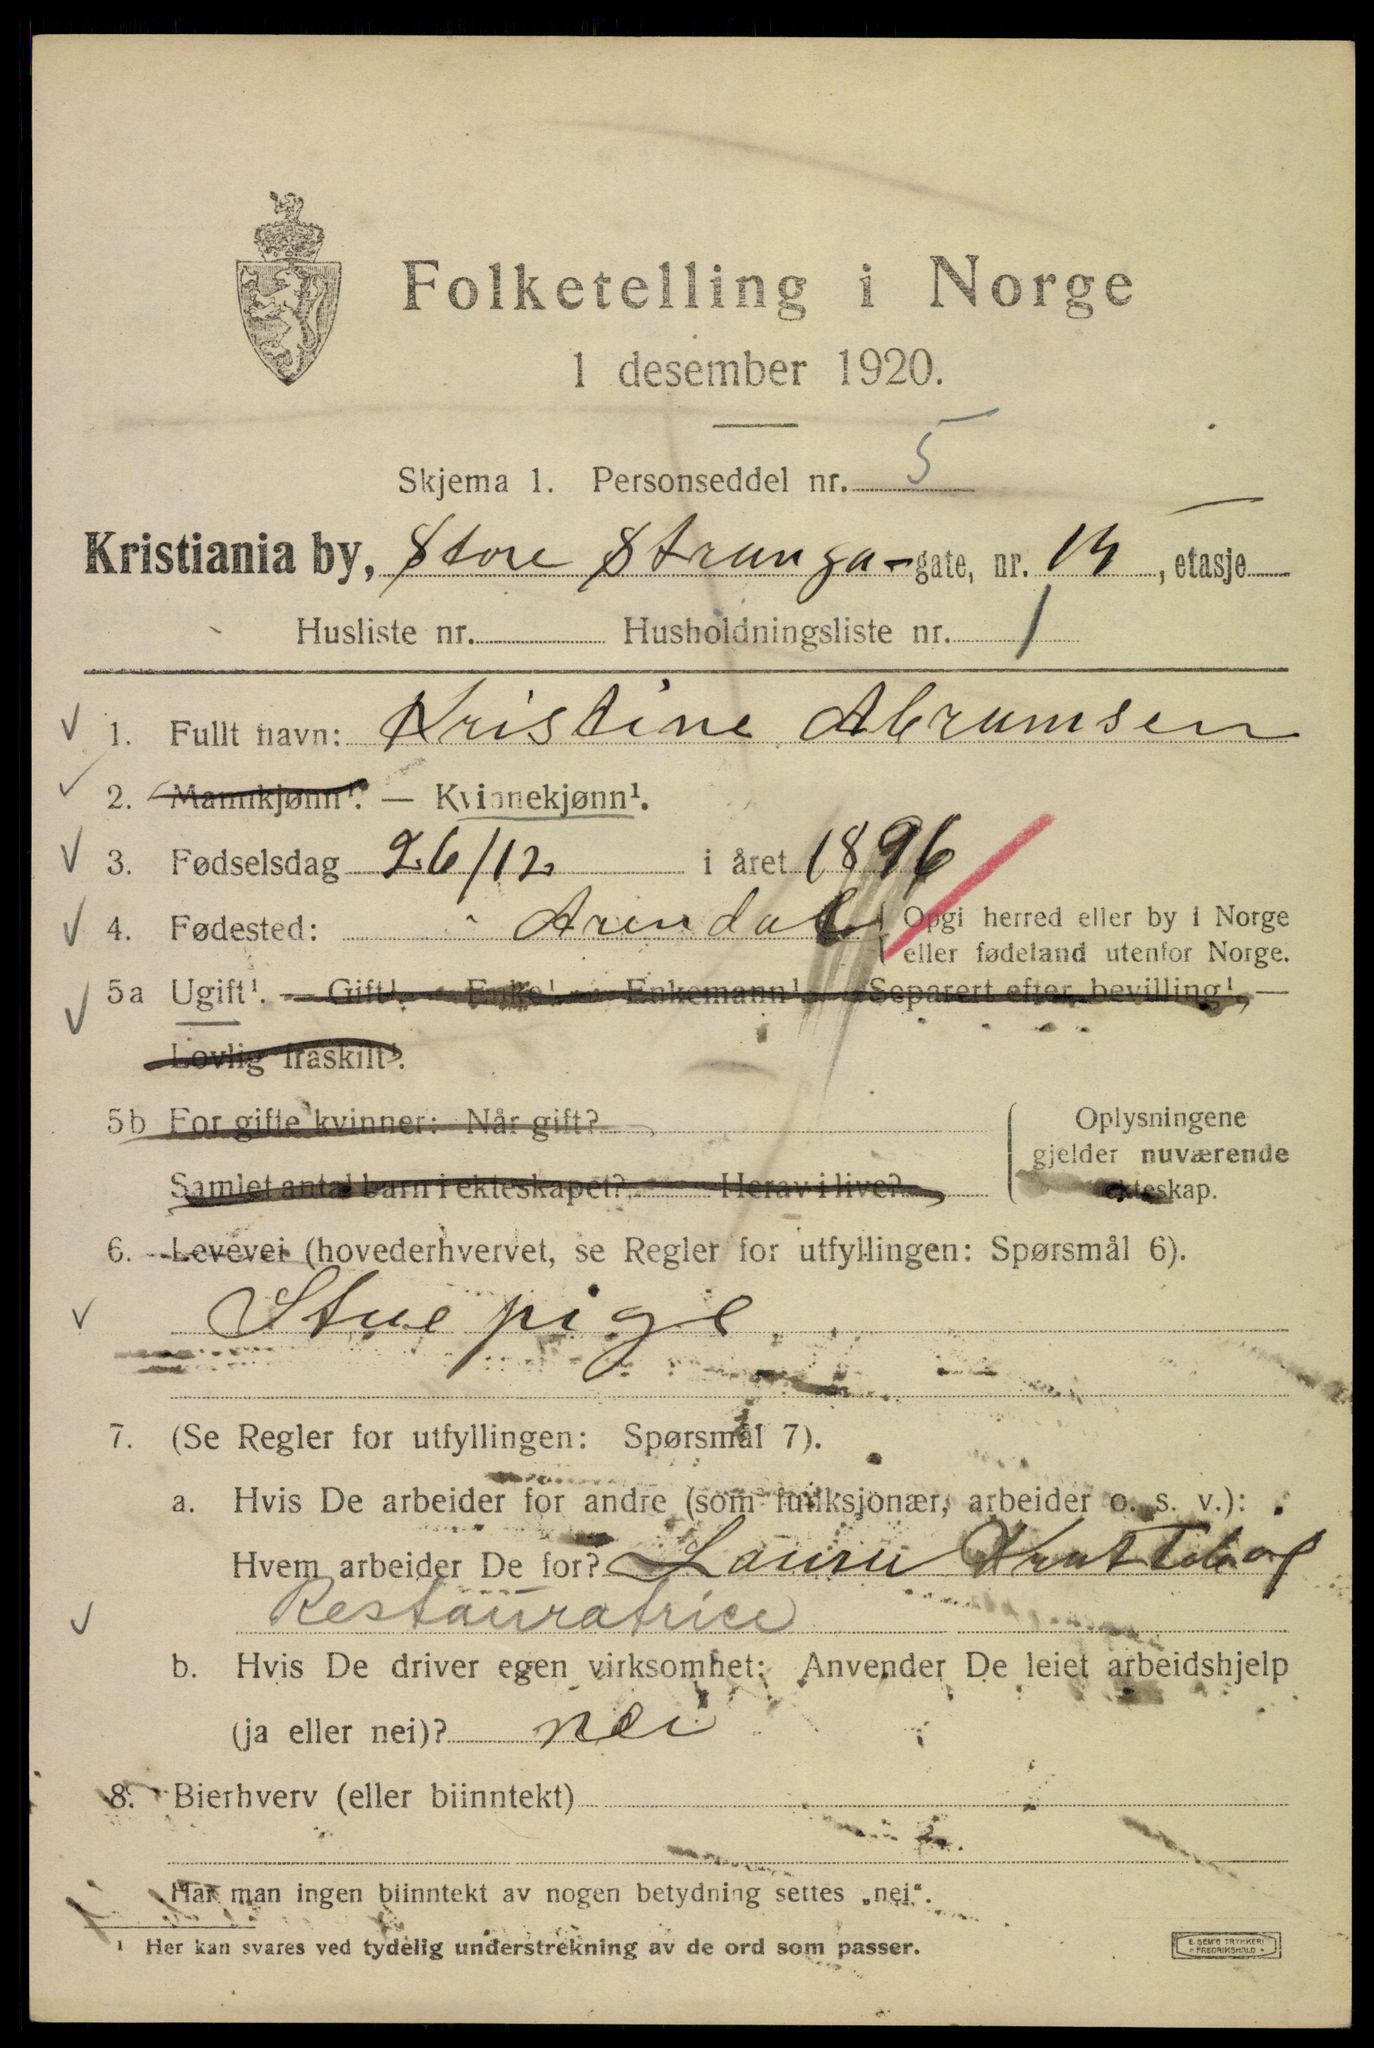 Folketelling i Norge
1 desember 1920.
Skjema 1. Personseddel nr. 5
Kristiania by, Store Stranga-gate, nr. , etasje
Husliste nr. Husholdningsliste nr. 1
1. Fullt navn: Kristine Abramsen
2. Mannkjønn¹. — Kvinnekjønn¹.
3. Fødselsdag 26/12 i året 1896
4. Fødested: Arendal Opgi herred eller by i Norge
eller fødeland utenfor Norge.
5a Ugift¹. — Gift¹. — Enke¹. — Enkemann¹. — Separert efter bevilling¹, —
Lovlig fraskilt¹.
5b For gifte kvinner: Når gift?
Samlet antal barn i ekteskapet? Herav i live?
Oplysningene
gjelder nuværende
ekteskap.
6. Levevei (hovederhvervet, se Regler for utfyllingen: Spørsmål 6).
Stuepige
7. (Se Regler for utfyllingen: Spørsmål 7).
a. Hvis De arbeider for andre (som funksjonær, arbeider o. s. v.):
Hvem arbeider De for? Laura
Restauratrice
b. Hvis De driver egen virksomhet: Anvender De leiet arbeidshjelp
(ja eller nei)? nei
8. Bierhverv (eller biinntekt)
Har man ingen biinntekt av nogen betydning settes „nei“.
¹ Her kan svares ved tydelig understrekning av de ord som passer.
E. SEM'S TRYKKERI
• FREDRIKSHALD •